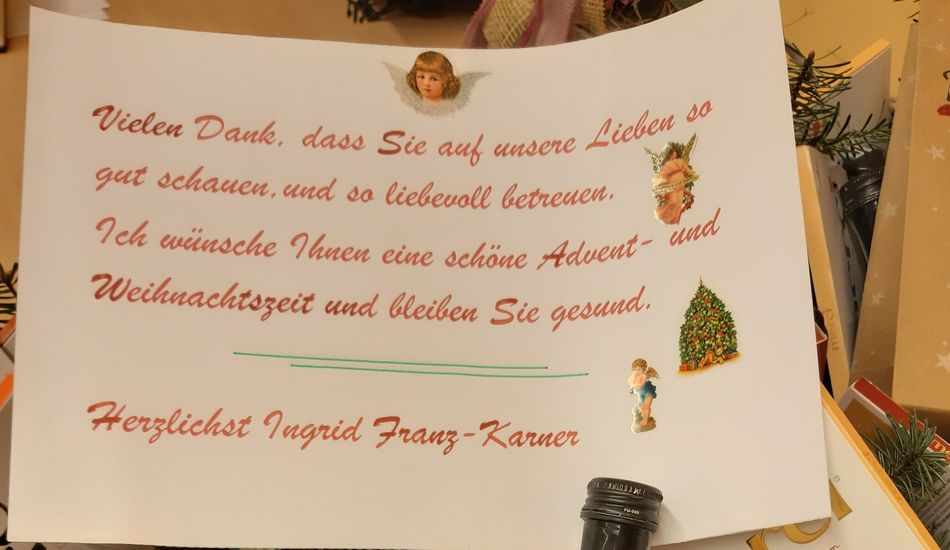 Vielen Dank, dass Sie auf unsere Lieben so
gut schauen, und so liebevoll betreuen.
Ich wünsche Ihnen eine schöne Advent- und
Weihnachtszeit und bleiben Sie gesund.
Herzlichst Ingrid Franz-Karner